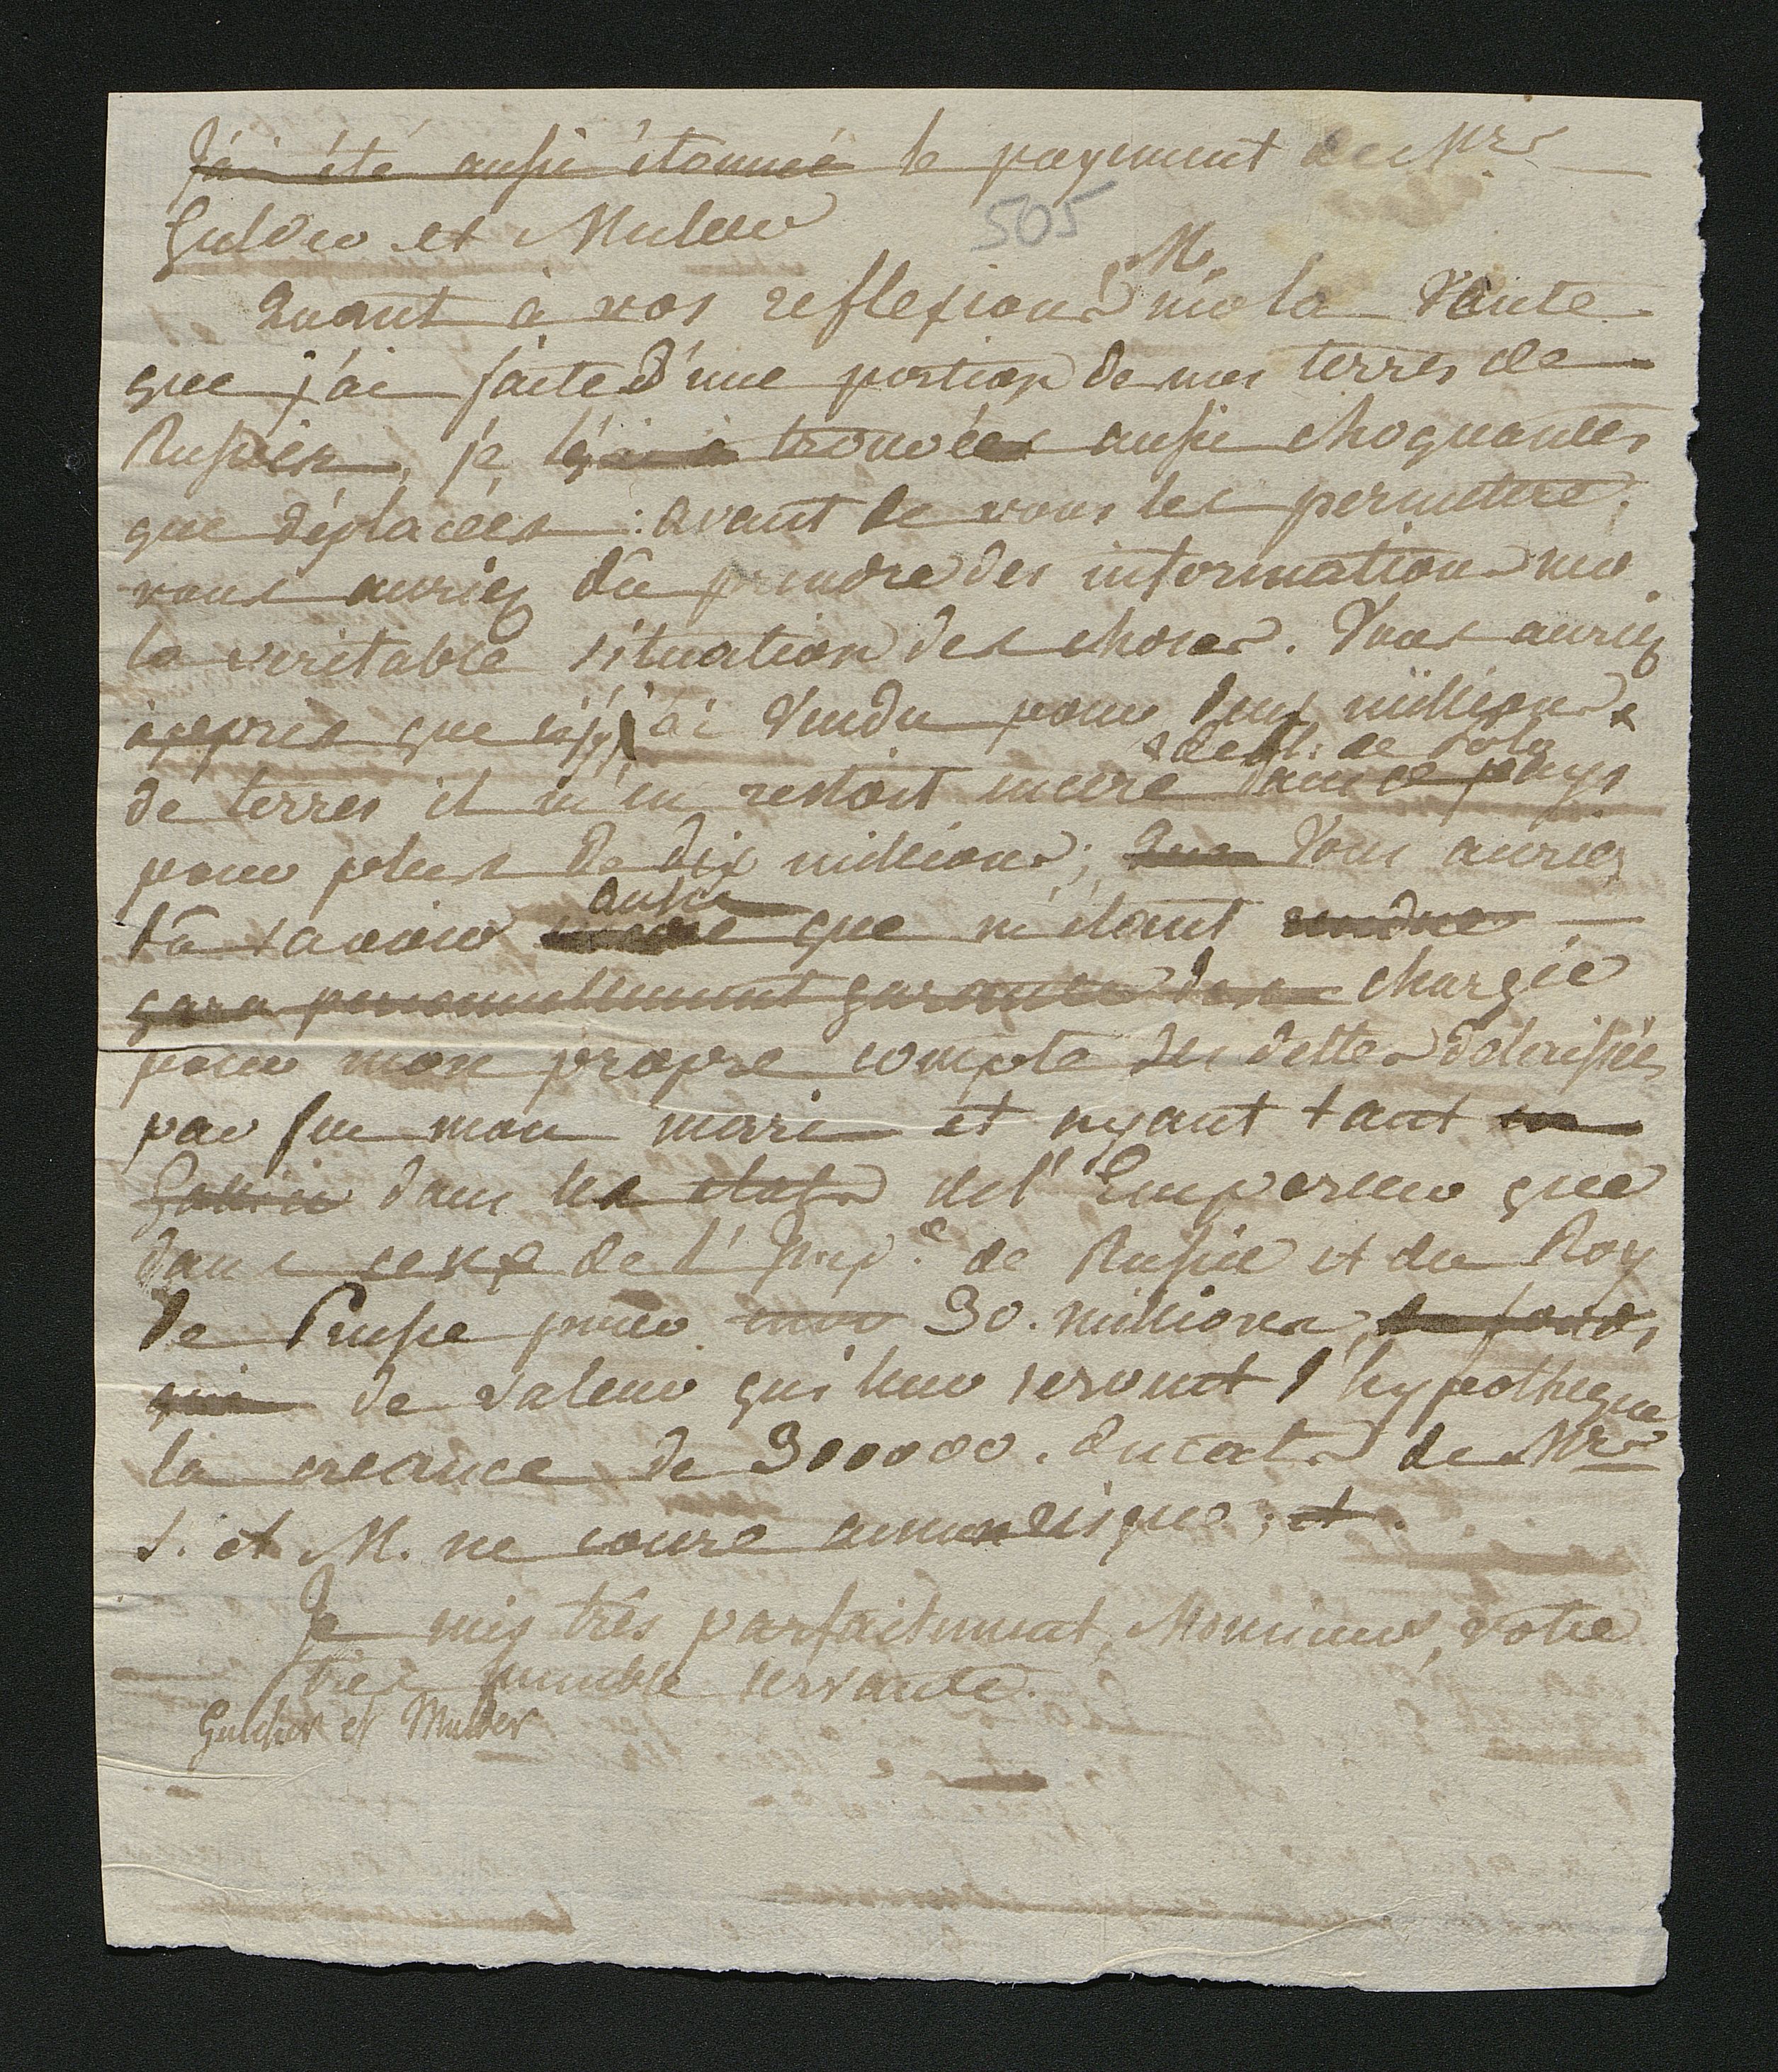 J'ai été aussi étonnée le payement de Mrs
Gulcher et Mulder
505
Quant à vos reflexions, M., sur la vente
que j'ai faite d'une portion de mes terres de
Russie, je les ai trouvées aussi choquantes
que déplacées : avant de vous les permettre,
vous auriez dû prendre des informations sur
la veritable situation des choses. Vous auriez
appris que si j'ai vendu pour deux millions
de fl: de Pole
de terres il m'en restoit encore dans ce pays
pour plus de dix millions; que Vous auriez
aussi
dû savoir que m'étant rendue
gara personnellement garante des chargée
pour mon propre compte des dettes delaissées
par feu mon mari et ayant tant en
Gallicie dans les etats de l'Empereur que
dans ceux de l'Imp.e de Russie et du Roy
de Prusse pour 30. millions de fonds,
qui de valeur qui leur servent d'hypotheque
la creance de 300000. ducats de Mrs
G. et M. ne coure aucun risque; et.
Je suis très parfaitement, Monsieur, votre
très humble servante.
Gulcher et Mulder